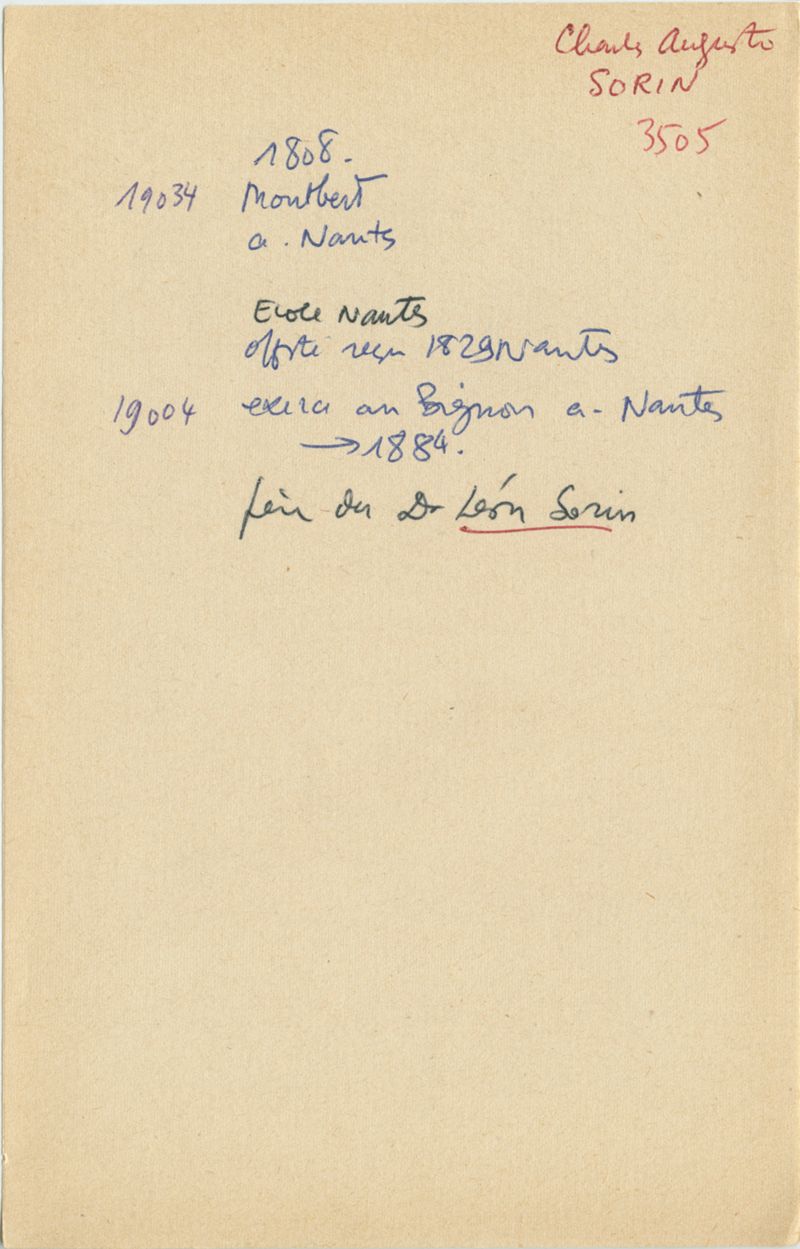 Charles Auguste
SORIN
3505
1808.
19034 Montbert
a. Nantes
Ecole Nantes
reçu 1829 Nantes
19004 exerca au Bignon a- Nantes
→ 1884.
père du Dr Léon Sorin